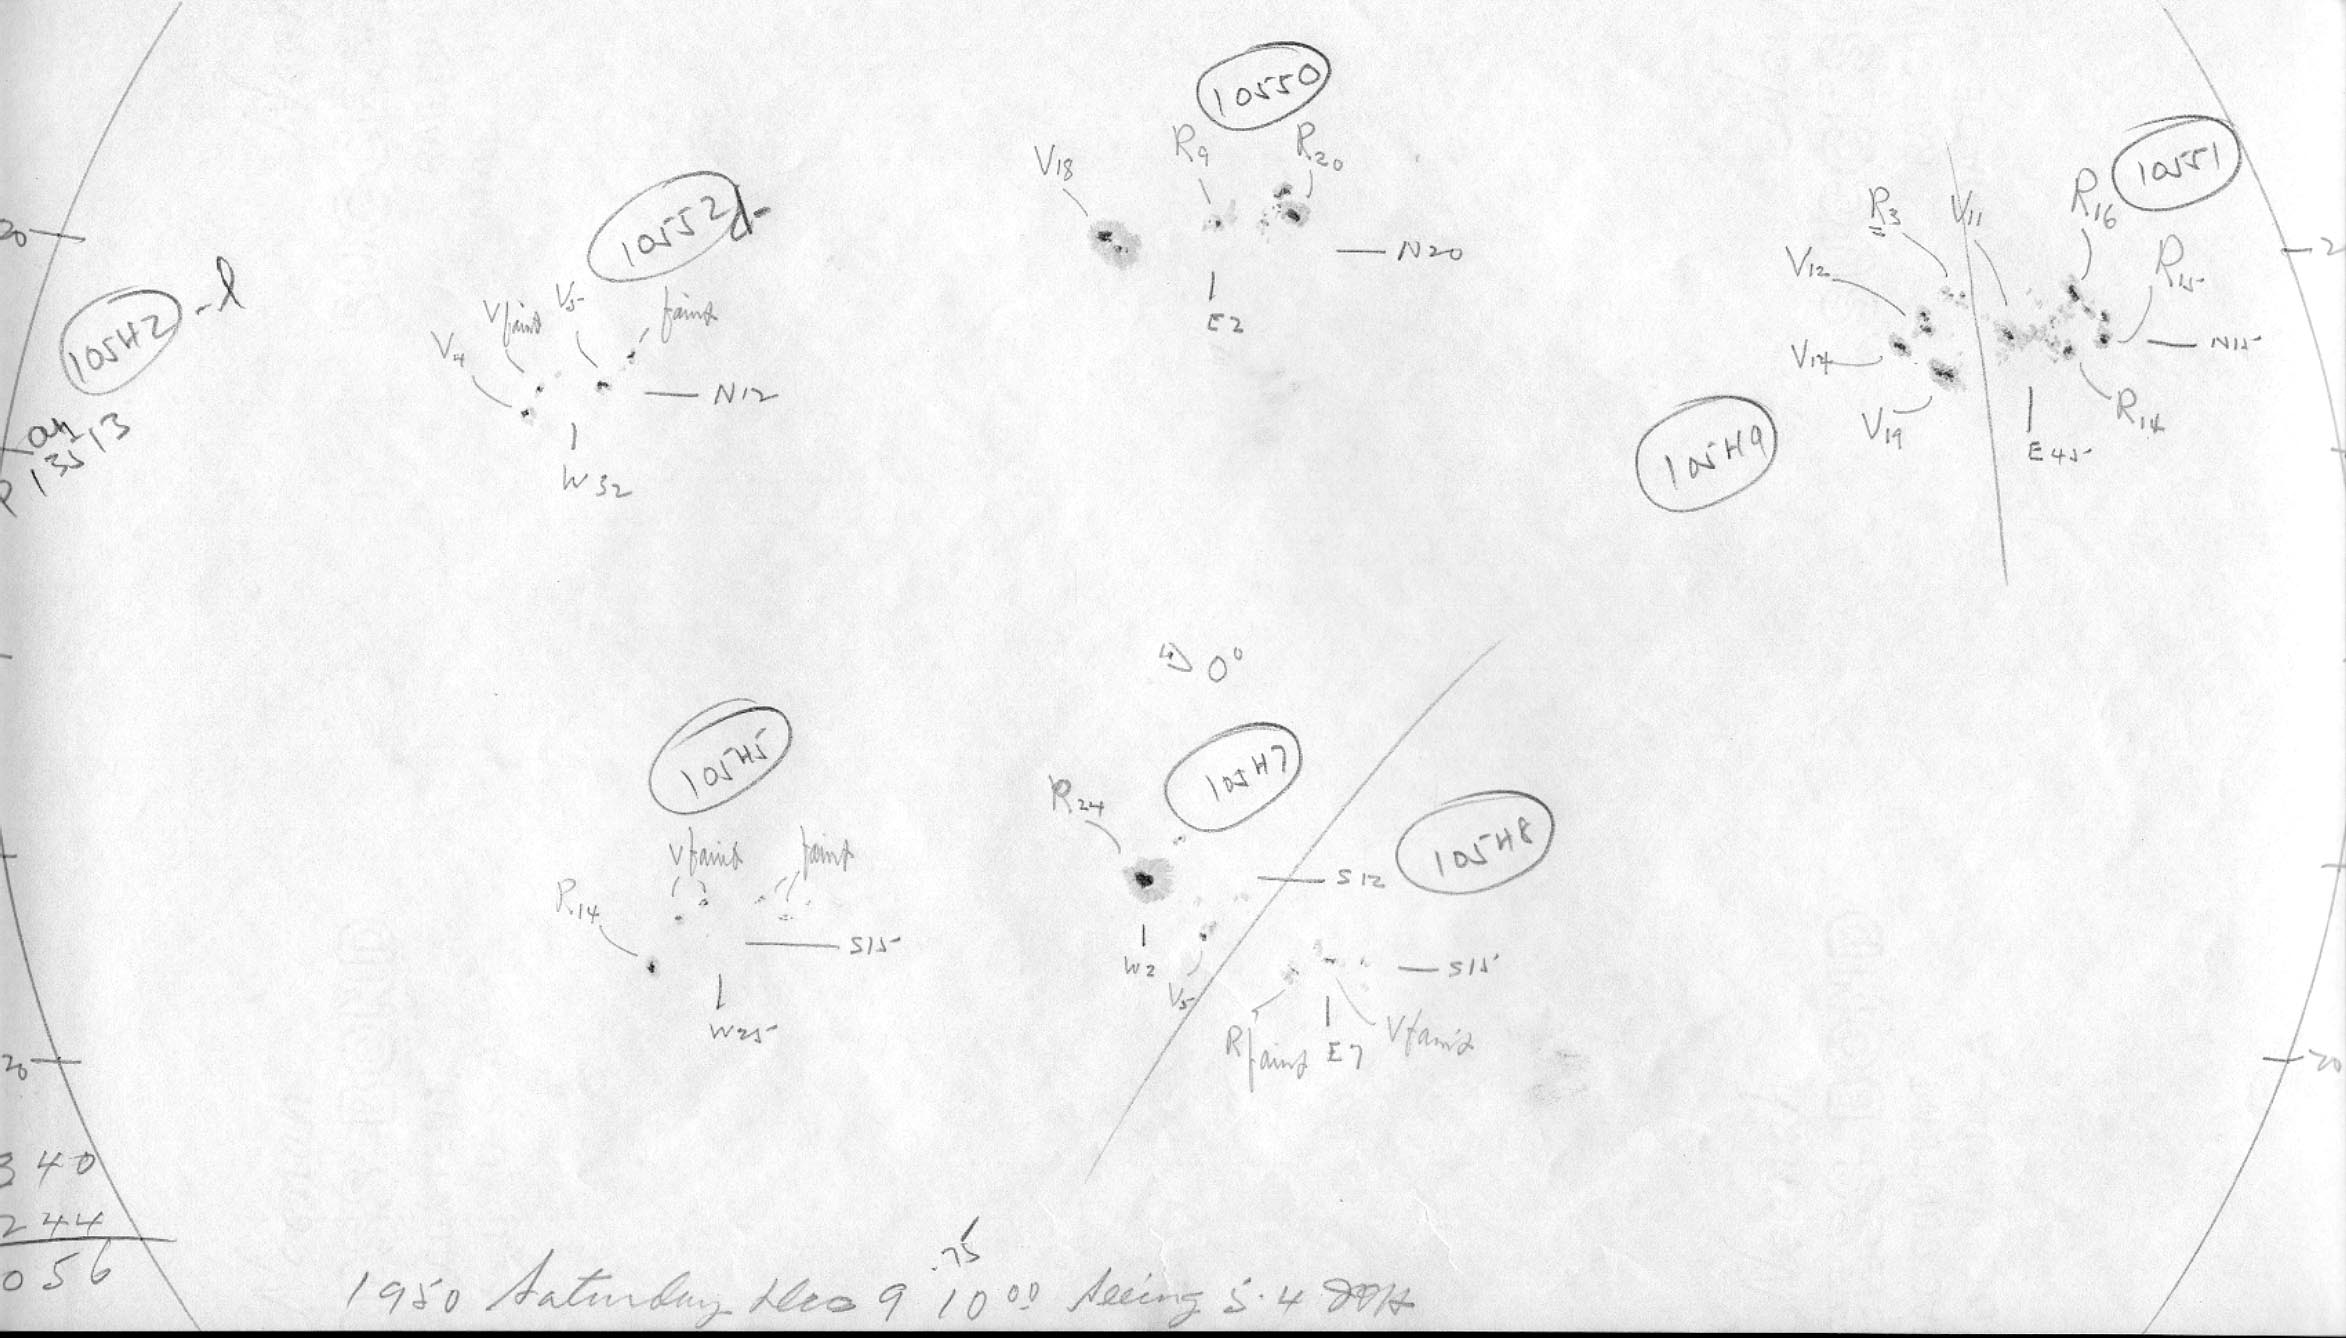 10550
V18
R9
R20
N20
E2
10551
R3
V11
R16
V12
R15
V14
N15
V19
R14
E45
10549
20
10552
V5
V faint
faint
V4
N12
W32
10542 -l
13513
0°
10545
V faint
faint
R14
S15
W25
10547
R24
S12
W2
V5
10548
S15
R faint
E7
V faint
20
20
340
244
056
.75
1950 Saturday Dec 9 10 00 Seeing 5.4